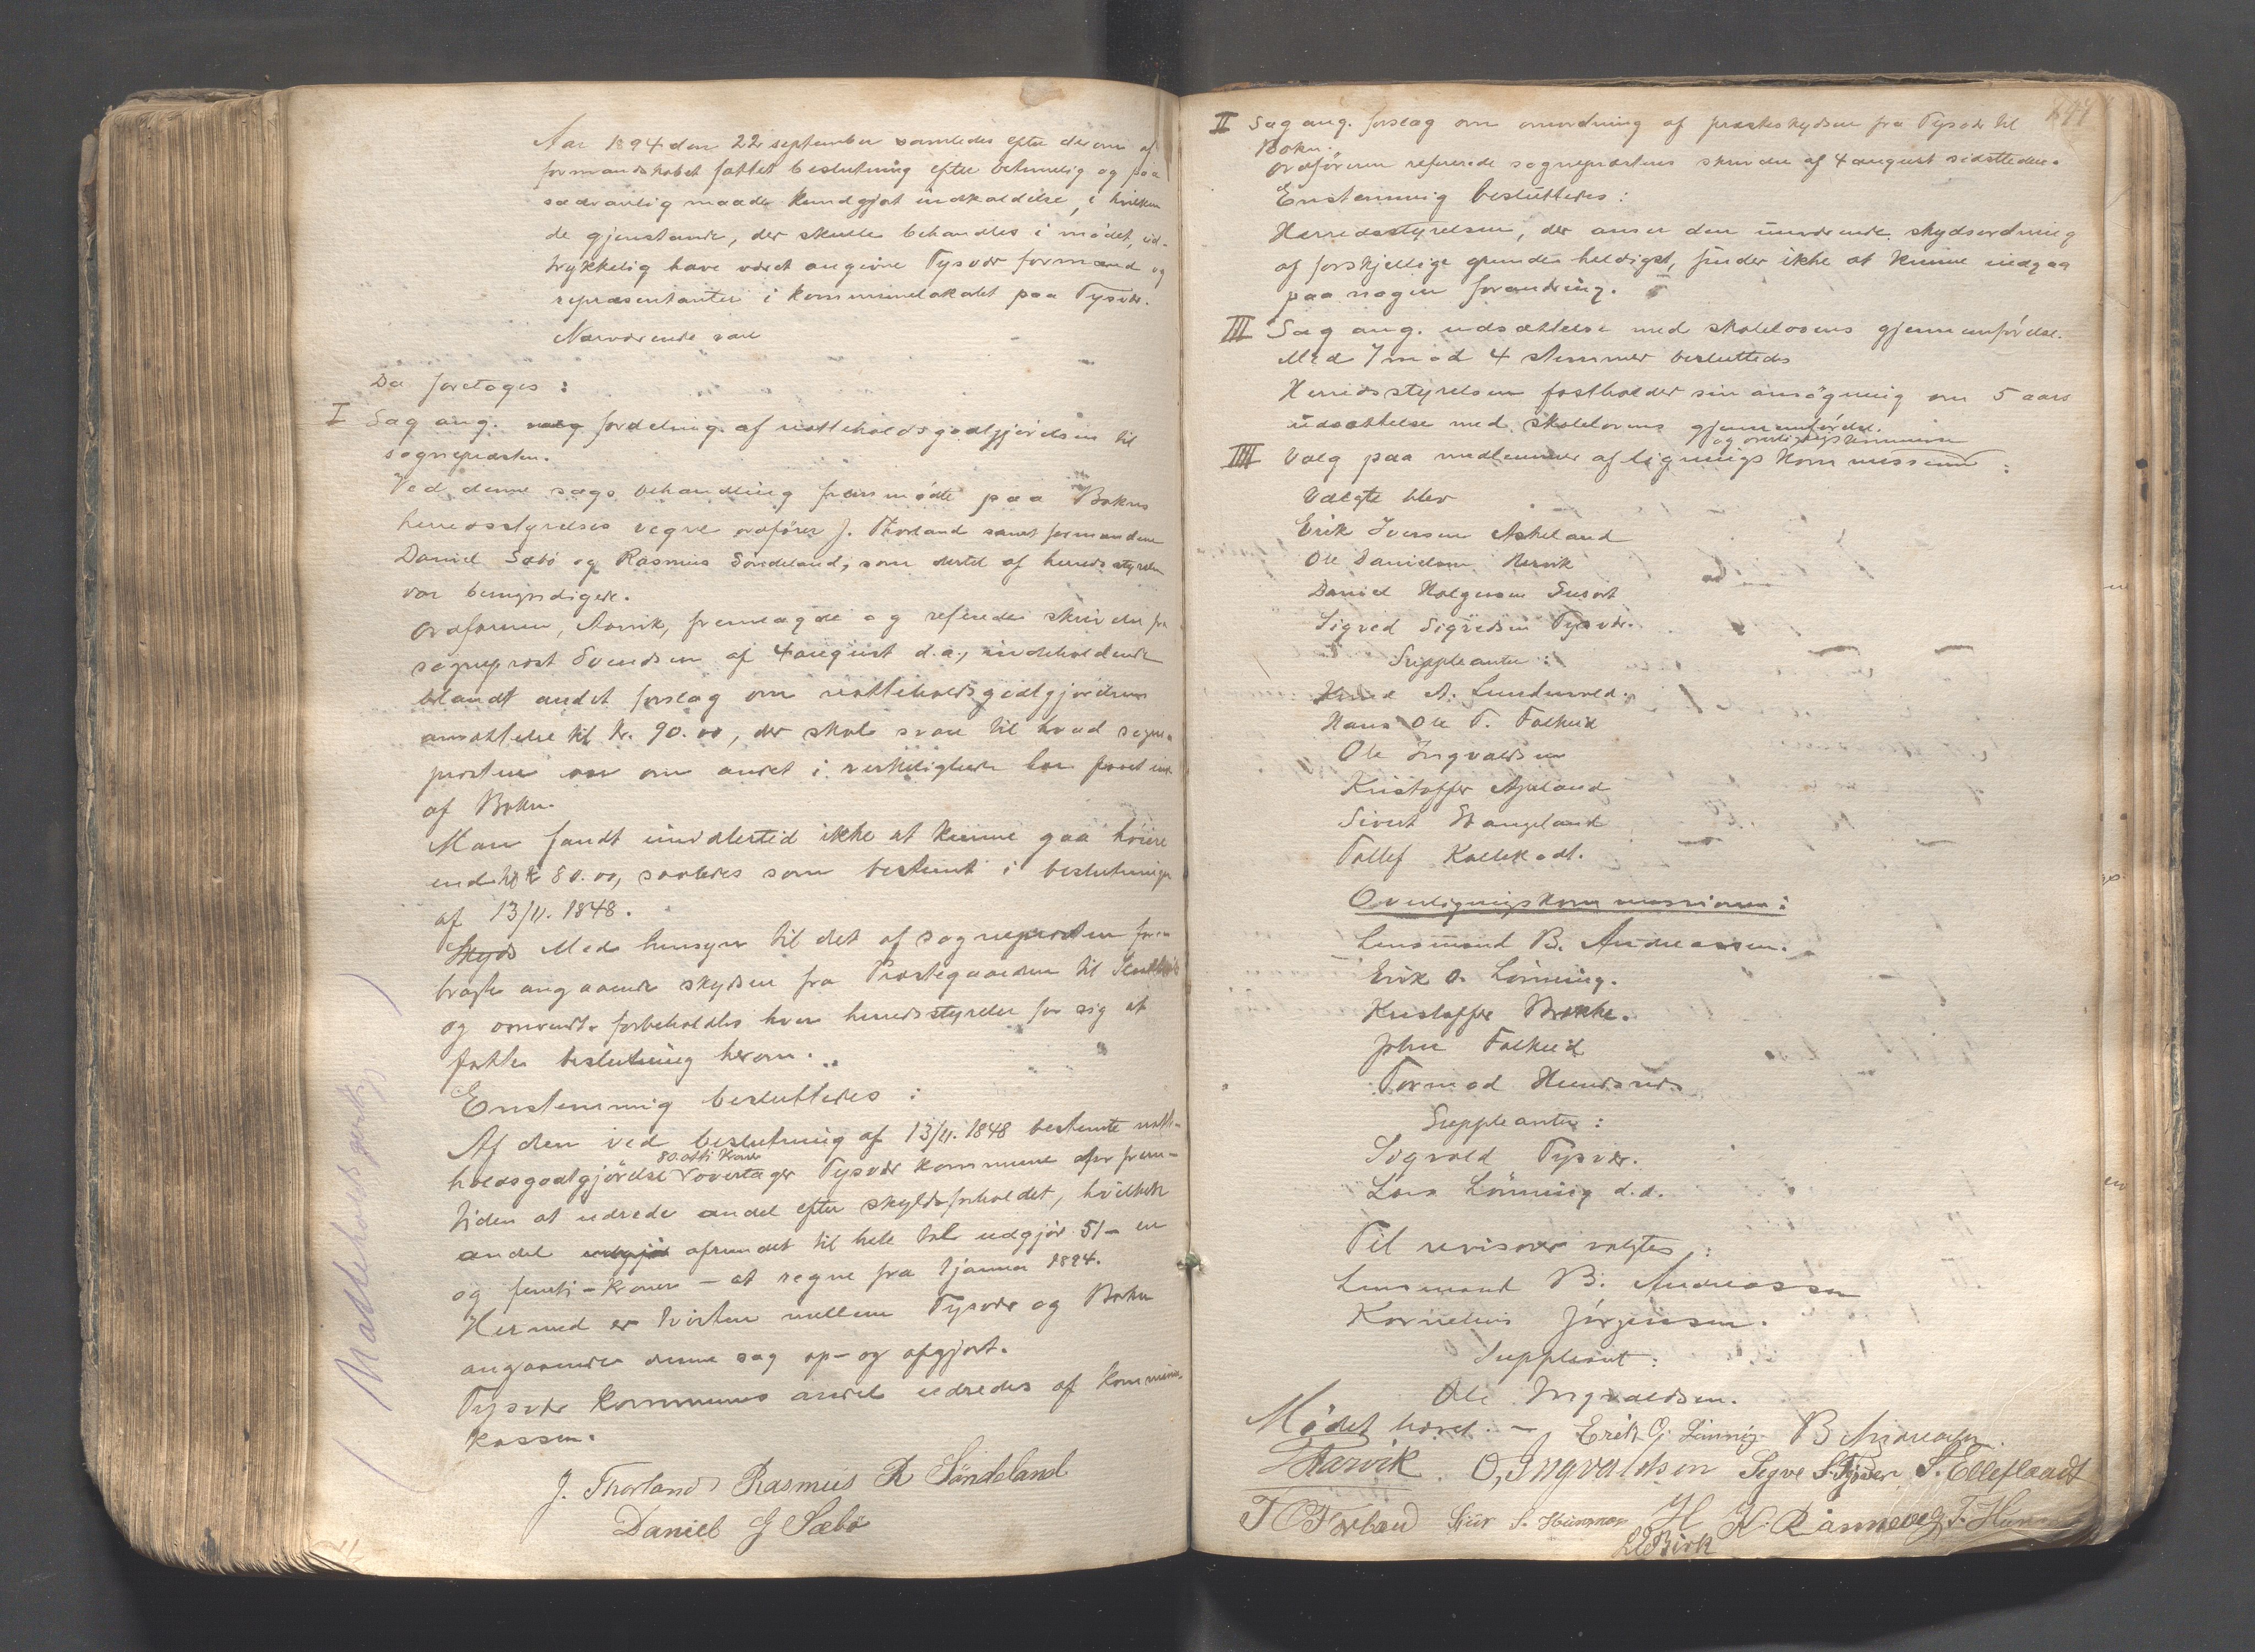 Aar 1894 den 22 september samledes efter derom af
formandskabet fattet beslutning efter betimelig og paa
sædvanlig maade kundgjort indkaldelse, i hvilken
de gjenstande, der skulle behandles i mødet, ud-
trykkelig have været angivne Tysvær formænd og
repræsentanter i kommunelokalet paa Tysvær.
Nærværende vare
Da foretoges:
I Sag ang. valg fordeling af natteholdsgodtgjørelsen til
sognepresten.
Ved denne sags behandling fremmødte paa Bokns
herredsstyrelses vegne ordfører J. Thorland samt formændene
Daniel Sæbö og Rasmus Söndeland, som dertil af herredsstyrelsen
var bemyndigede.
Ordføreren, Aarvik, fremlagde og referede skrivelse fra
sogneprest Svendsen af 4 august d.a., indeholdende
blandt andet forslag om natteholdsgodtgjørelsens
ansættelse til Kr. 90.00, der skal svare til hvad sogne-
presten om andet i virkeligheden har
af Bokn.
Man fandt imidlertid ikke at kunne gaa høiere
end til k 80.00, saaledes som bestemt i beslutningen
af 13/11. 1848.
Skyds Med hensyn til det af sognepresten frem-
bragte angaaende skydsen fra Præstegaarden til
og omvendt forbeholdtes hver herredsstyrelse for sig at
fatte beslutning herom.
Enstemmig besluttedes:
Af den ved beslutning af 13/11. 1848 bestemte natte-
holdsgodtgjörelse 80 otti Kroner overtager Tysvær kommune for frem-
tiden at udrede andel efter skyldforholdet, hvilken
andel udgjør afrundet til hele tal udgjør 51 - en
og femti - kroner - at regne fra 1 januar 1894.
Hermed er tvisten mellem Tysvær og Bokn
angaaende denne sag op- og afgjort.
Tysvær kommunes andel udredes af kommune-
kassen.
J. Thorland Rasmus R Söndeland
Daniel G Sæbø
II Sag ang. forslag om omordning af presteskydsen fra Tysvær til
Bokn.
Ordføreren refererede sogneprestens skrivelse af 4 august sidstleden.
Enstemmig besluttedes:
Herredsstyrelsen, der anser den nuværende skydsordning
af forskjellige grunde heldigst, finder ikke at kunne indgaa
paa nogen forandring.
III Sag ang. udsættelse med skolelovens gjennemførelse.
Med 7 mod 4 stemmer besluttedes
Herredsstyrelsen fastholder sin ansögning om 5 aars
udsættelse med skolelovens gjennemførelse.
og overligningskommission
IIII Valg paa medlemmer af lignings kommissionen:
Valgte blev
Erik Iversen Askeland
Ole Danielsen Hervik
Daniel Holgersen Susort
Sigved Sigvedsen Tysvær.
Suppleanter:
A. Lundevold.
Hans Ole T. Falkeid
Ole Ingvaldsen
Kristoffer Apeland
Sivert Stangeland
Tollef Kallekodt.
Overligningskommissionen:
Lensmand B. Andreassen.
Erik O. Lönning.
Kristoffer Bokke.
John Falkeid
Tormod Hundsnes
Suppleanter:
Sigvald Tysvær.
Lars Lönning d.æ.
Til revisorer valgtes:
Lensmand B. Andreassen
Kornelius Jörgensen.
Suppleant:
Ole Ingvaldsen.
Mödet hævet. - Erik O. Lönning B Andreassen.
Aarvik. O, Ingvaldsen Segve S. Tysver. S. Ellefland
T Førland Sjur S. Hunsnes H K. Rønnevig T. Hun
L Birk
Nattehold